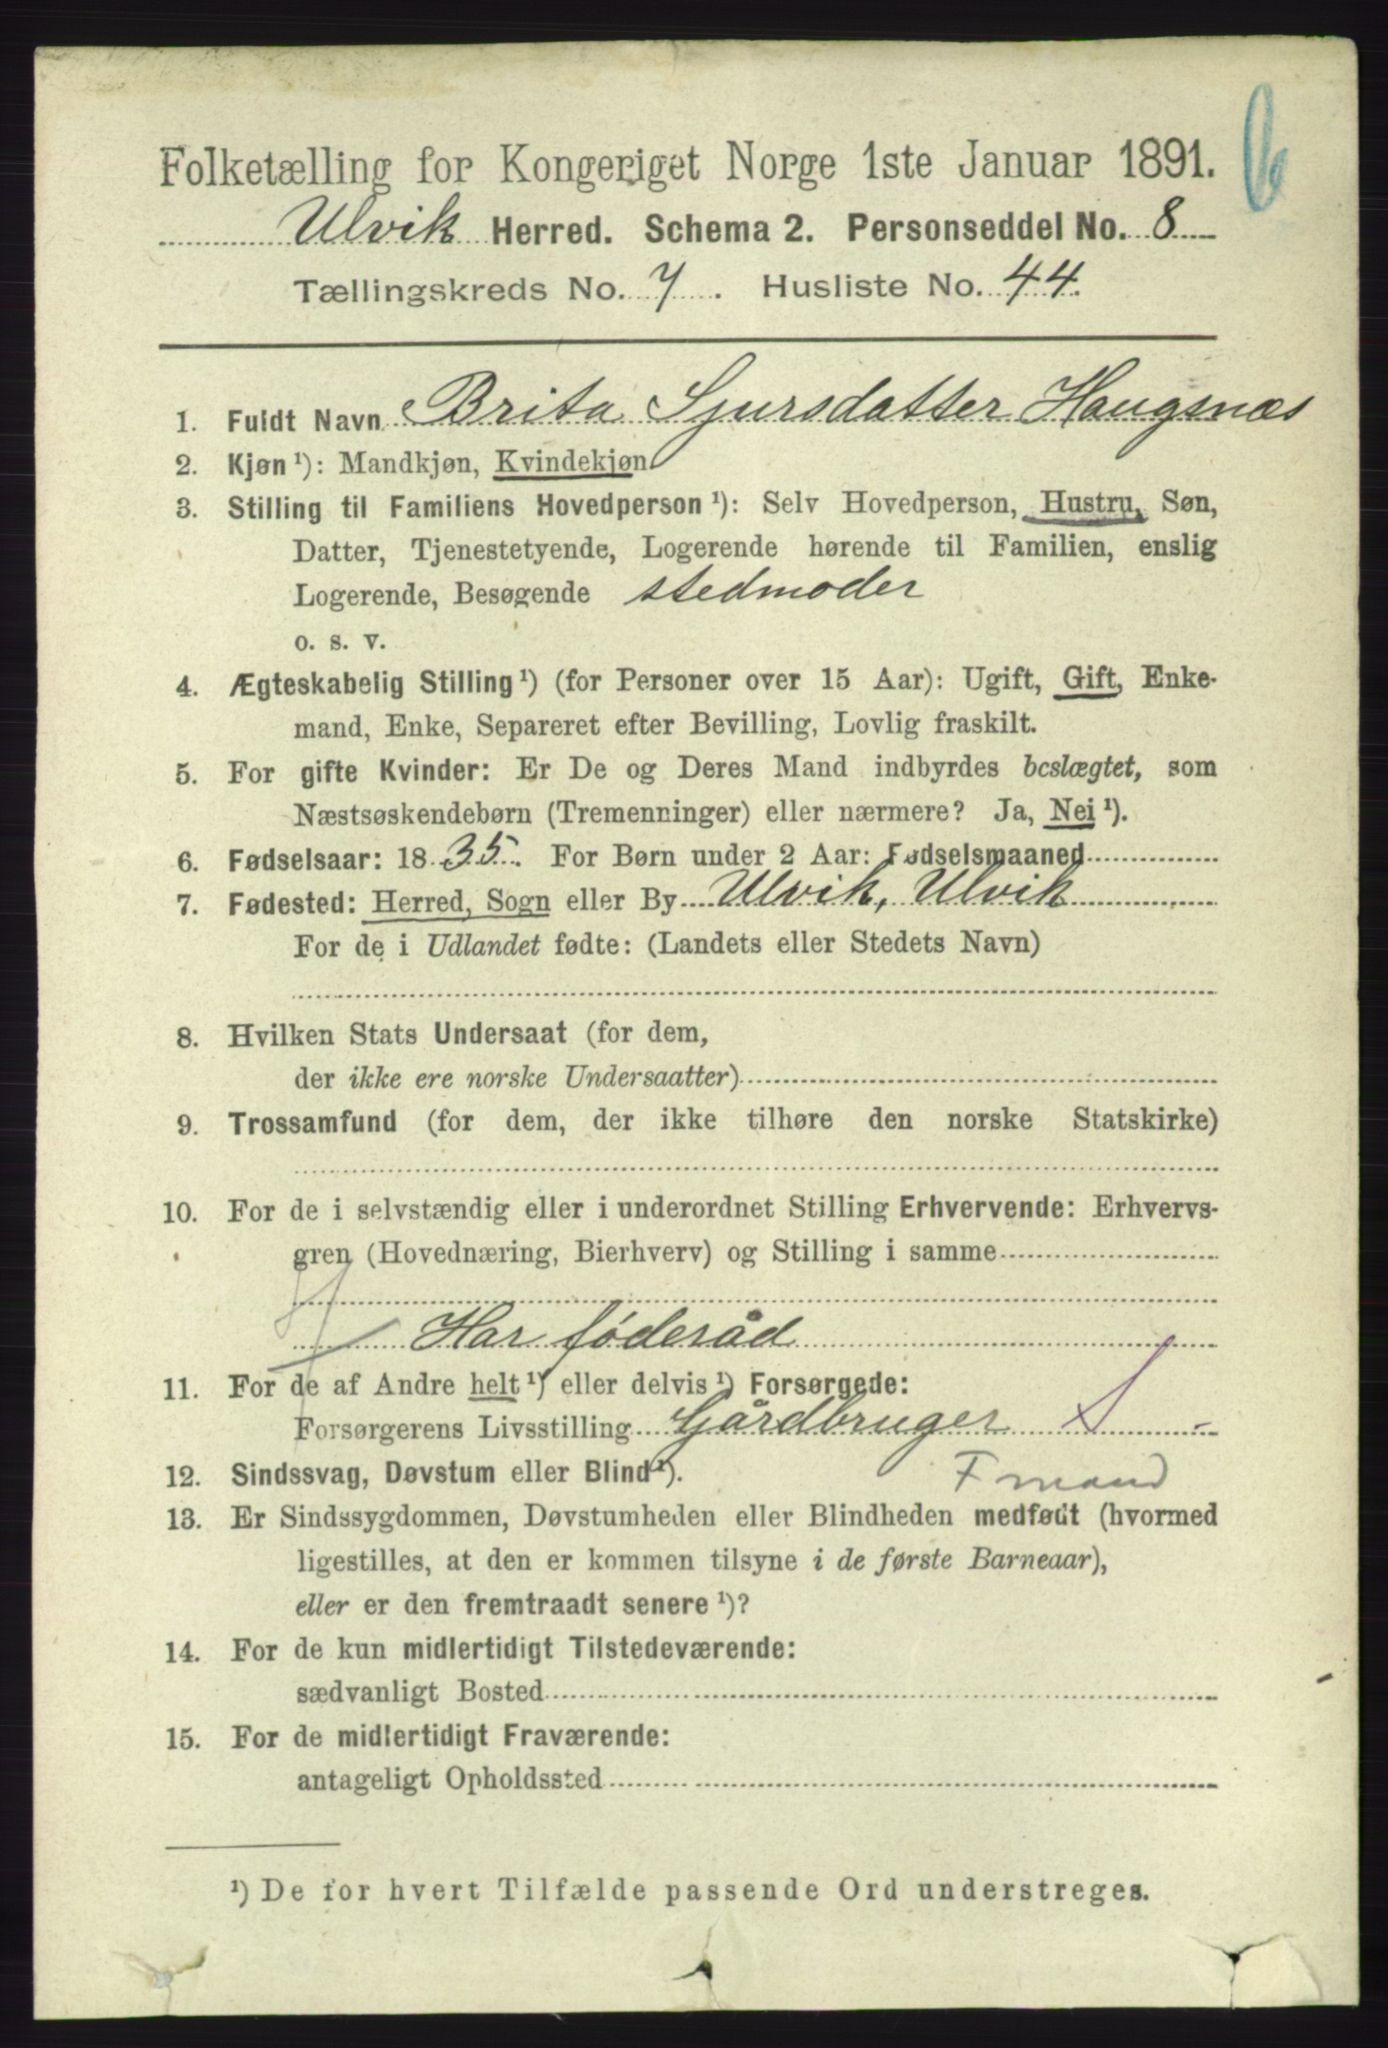 Folketælling for Kongeriget Norge 1ste Januar 1891.
Ulvik Herred. Schema 2. Personseddel No. 8
Tællingskreds No. 7. Husliste No. 44.
1. Fuldt Navn Brita Sjursdatter Haugsnæs
2. Kjøn ¹): Mandkjøn, Kvindekjøn
3. Stilling til Familiens Hovedperson ¹): Selv Hovedperson, Hustru, Søn,
Datter, Tjenestetyende, Logerende hørende til Familien, enslig
Logerende, Besøgende stedmoder
o. s. v.
4. Ægteskabelig Stilling ¹) (for Personer over 15 Aar): Ugift, Gift, Enke-
mand, Enke, Separeret efter Bevilling, Lovlig fraskilt.
5. For gifte Kvinder: Er De og Deres Mand indbyrdes beslægtet, som
Næstsøskendebørn (Tremenninger) eller nærmere? Ja, Nei ¹).
6. Fødselsaar: 1835. For Børn under 2 Aar: Fødselsmaaned
7. Fødested: Herred, Sogn eller By Ulvik, Ulvik
For de i Udlandet fødte: (Landets eller Stedets Navn)
8. Hvilken Stats Undersaat (for dem,
der ikke ere norske Undersaatter)
9. Trossamfund (for dem, der ikke tilhøre den norske Statskirke)
10. For de i selvstændig eller i underordnet Stilling Erhvervende: Erhvervs-
gren (Hovednæring, Bierhverv) og Stilling i samme
Har føderåd
11. For de af Andre helt ¹) eller delvis ¹) Forsørgede:
Forsørgerens Livsstilling Gårdbruger S -
F mand
12. Sindssvag, Døvstum eller Blind ¹).
13. Er Sindssygdommen, Døvstumheden eller Blindheden medfødt (hvormed
ligestilles, at den er kommen tilsyne i de første Barneaar),
eller er den fremtraadt senere ¹)?
14. For de kun midlertidigt Tilstedeværende:
sædvanligt Bosted
15. For de midlertidigt Fraværende:
antageligt Opholdssted
¹) De for hvert Tilfælde passende Ord understreges.